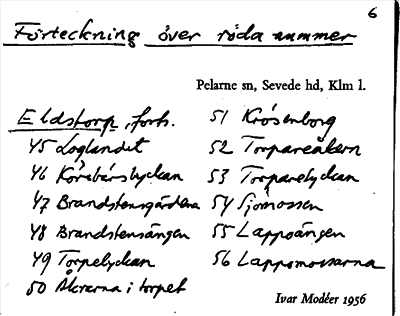 6
Förteckning över röda nummer
Pelarne sn, Sevede hd, Klm l.
Eldstorp, forts.
45 Loglandet
46 Körsbärslyckan
47 Brandstensgärdena
48 Brandstensängen
49 Torpelyckan
50 Åkrarna i torpet
51 Krösenborg
52 Torpareåkern
53 Torparelyckan
54 Sjömossen
55 Lappoängen
56 Lappomossarna
Ivar Modéer 1956